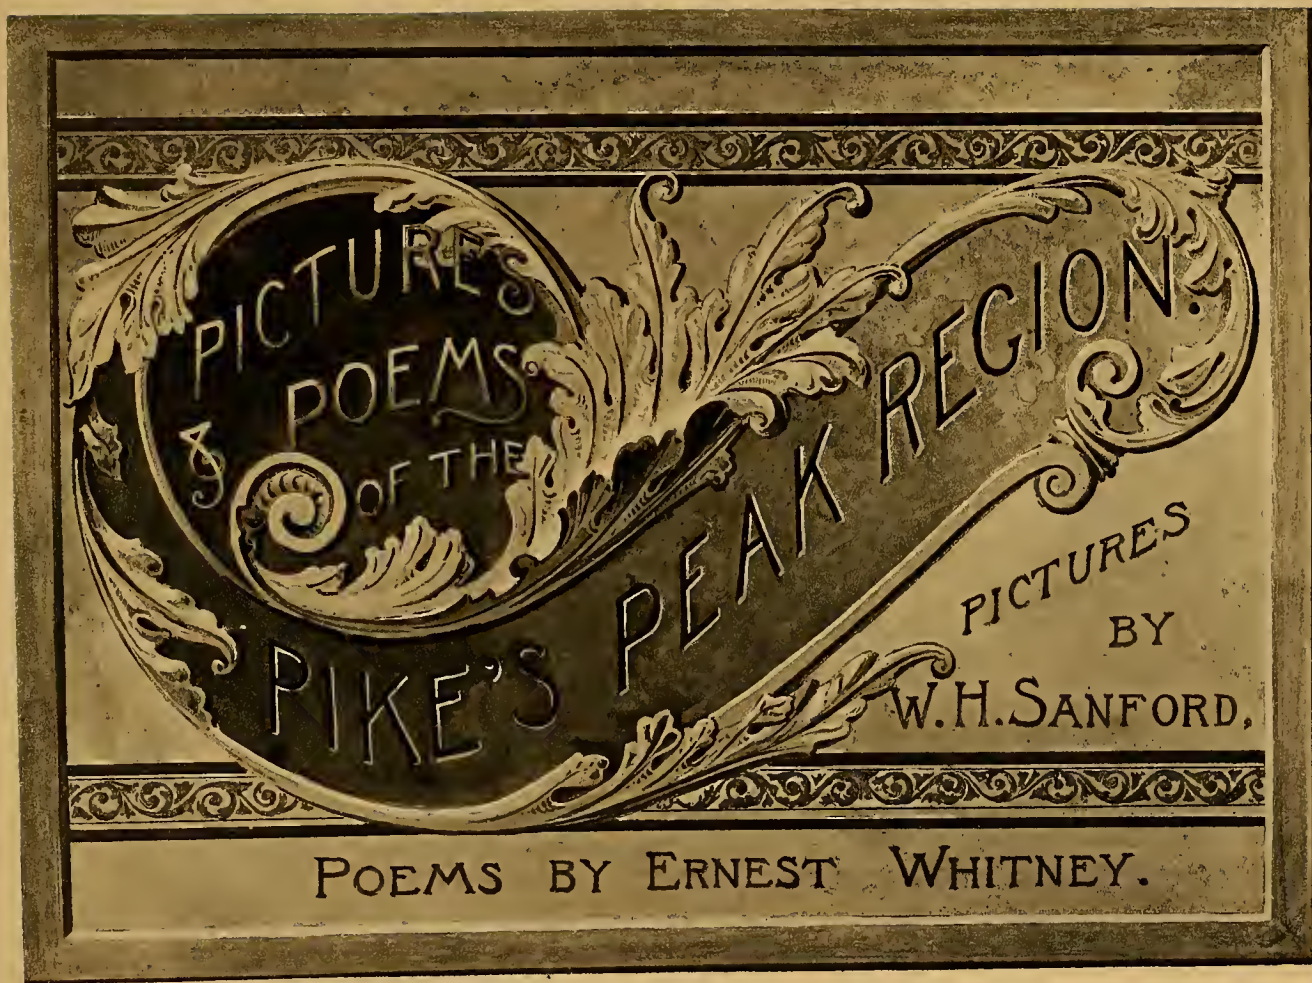 PICTURES
& POEMS
OF THE
PIKE'S PEAK REGION.
PICTURES
BY
W.H. SANFORD,
POEMS BY ERNEST WHITNEY.